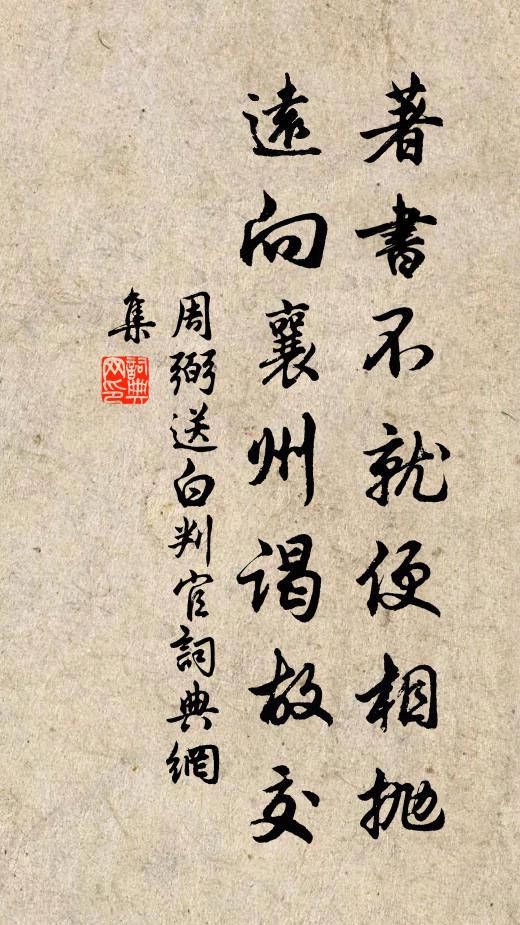 著書不就便相拋
遠向襄州謁故交
周弼送白判官詞典網
集
詞典網印